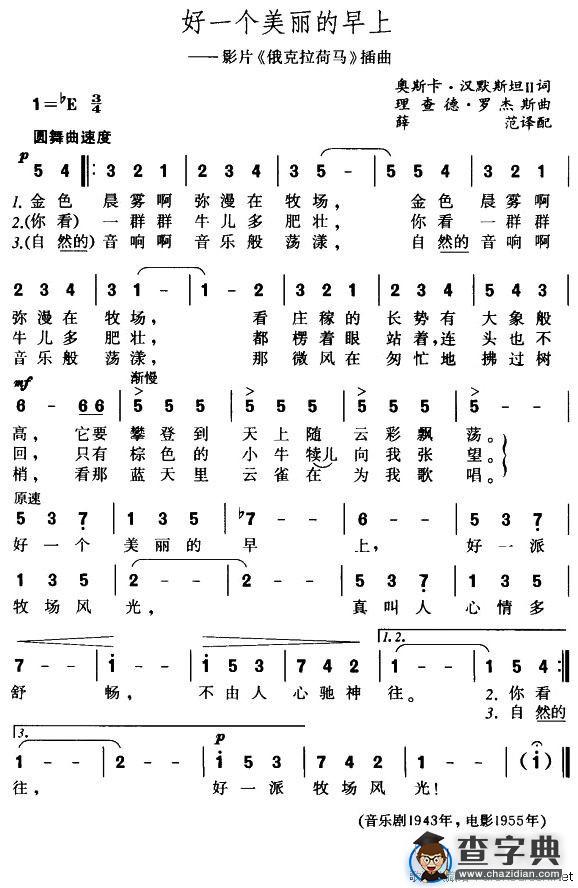 好一个美丽的早上
——影片《俄克拉荷马》插曲
奥斯卡·汉默斯坦II词
1=♭E 3/4
理查德·罗杰斯曲
薛 范译配
圆舞曲速度
p
5 4 ‖: 3 2 1 | 2 3 4 | 3 1 - | 1 5 4 | 3 2 1 |
1. 金色 晨雾啊 弥漫在 牧场, 金色 晨雾啊
2.(你看) 一群群 牛儿多 肥壮, 你看 一群群
3.(自然的) 音响啊 音乐般 荡漾, 自然的 音响啊
2 3 4 | 3 1 - | 1 - 2 | 3 2 1 | 3 2 4 | 5 4 3 |
弥漫在 牧场, 看 庄稼的 长势有 大象般
牛儿多 肥壮, 都 楞着眼 站着,连 头也不
音乐般 荡漾, 那 微风在 匆忙地 拂过树
mf 渐慢
6 - 6 6 | 5 5 5 | 5 5 5 | 5 5 5 | 5 - - |
高, 它要 攀登到 天上随 云彩飘 荡。
回, 只有 棕色的 小牛犊儿 向我张 望。
梢, 看那 蓝天里 云雀在 为我歌 唱。
原速
5 3 7 | 1 3 5 | ♭7 - - | 6 - - | 5 3 7 |
好一个 美丽的 早 上, 好一派
1 3 5 | 2 - - | 2 - - | 5 3 7 | 1 3 5 |
牧场风 光, 真叫人 心情多
1. 2.
7 - - | i - - | i 5 3 | 7 4 2 | 1 - - | 1 5 4 :‖
舒 畅, 不由人 心驰神 往。 2. 你看
3. 自然的
3.
p
1 - - | 2 - - | i 5 3 | 7 4 2 | 1 - - | (i) - ‖
往, 好一派 牧场风 光!
(音乐剧1943年,电影1955年)
查字典
www.chazidian.com